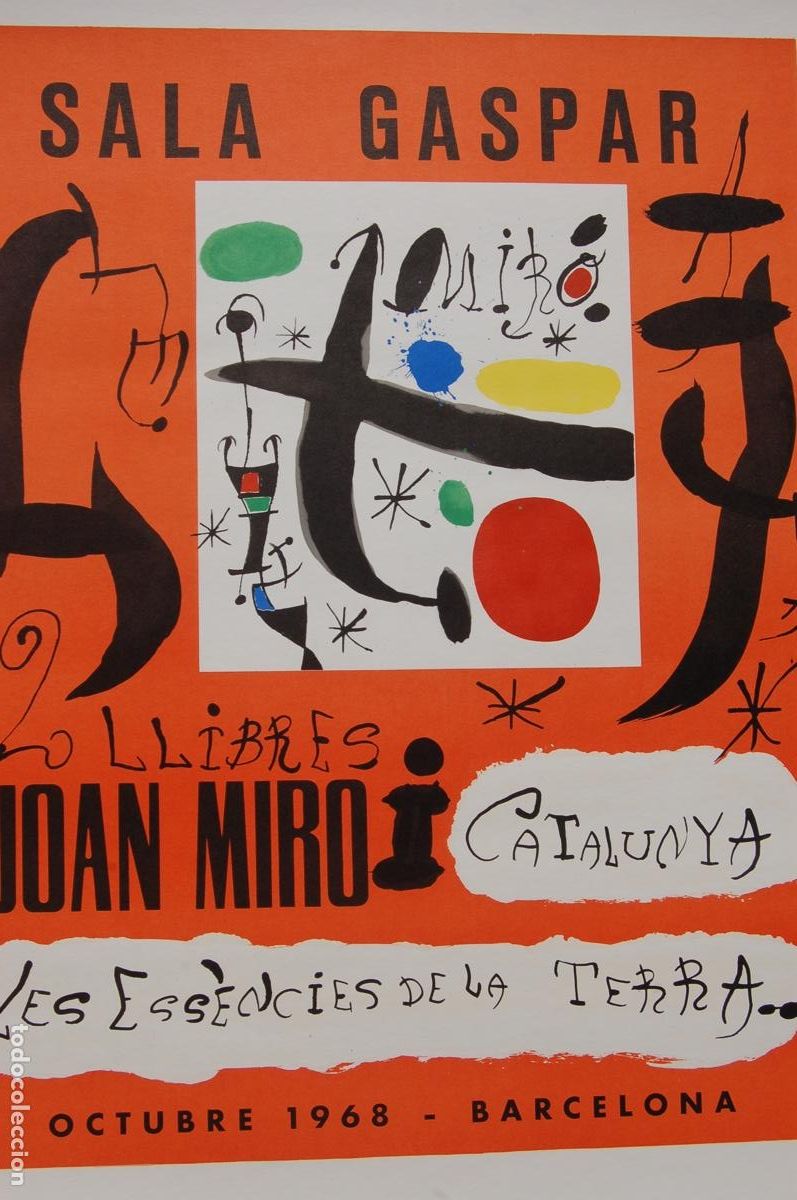 SALA GASPAR
Miró
LLiBRES
JOAN MIRO i CATALUNYA
LES ESSÈNCIES DE LA TERRA...
OCTUBRE 1968 - BARCELONA
todocoleccion